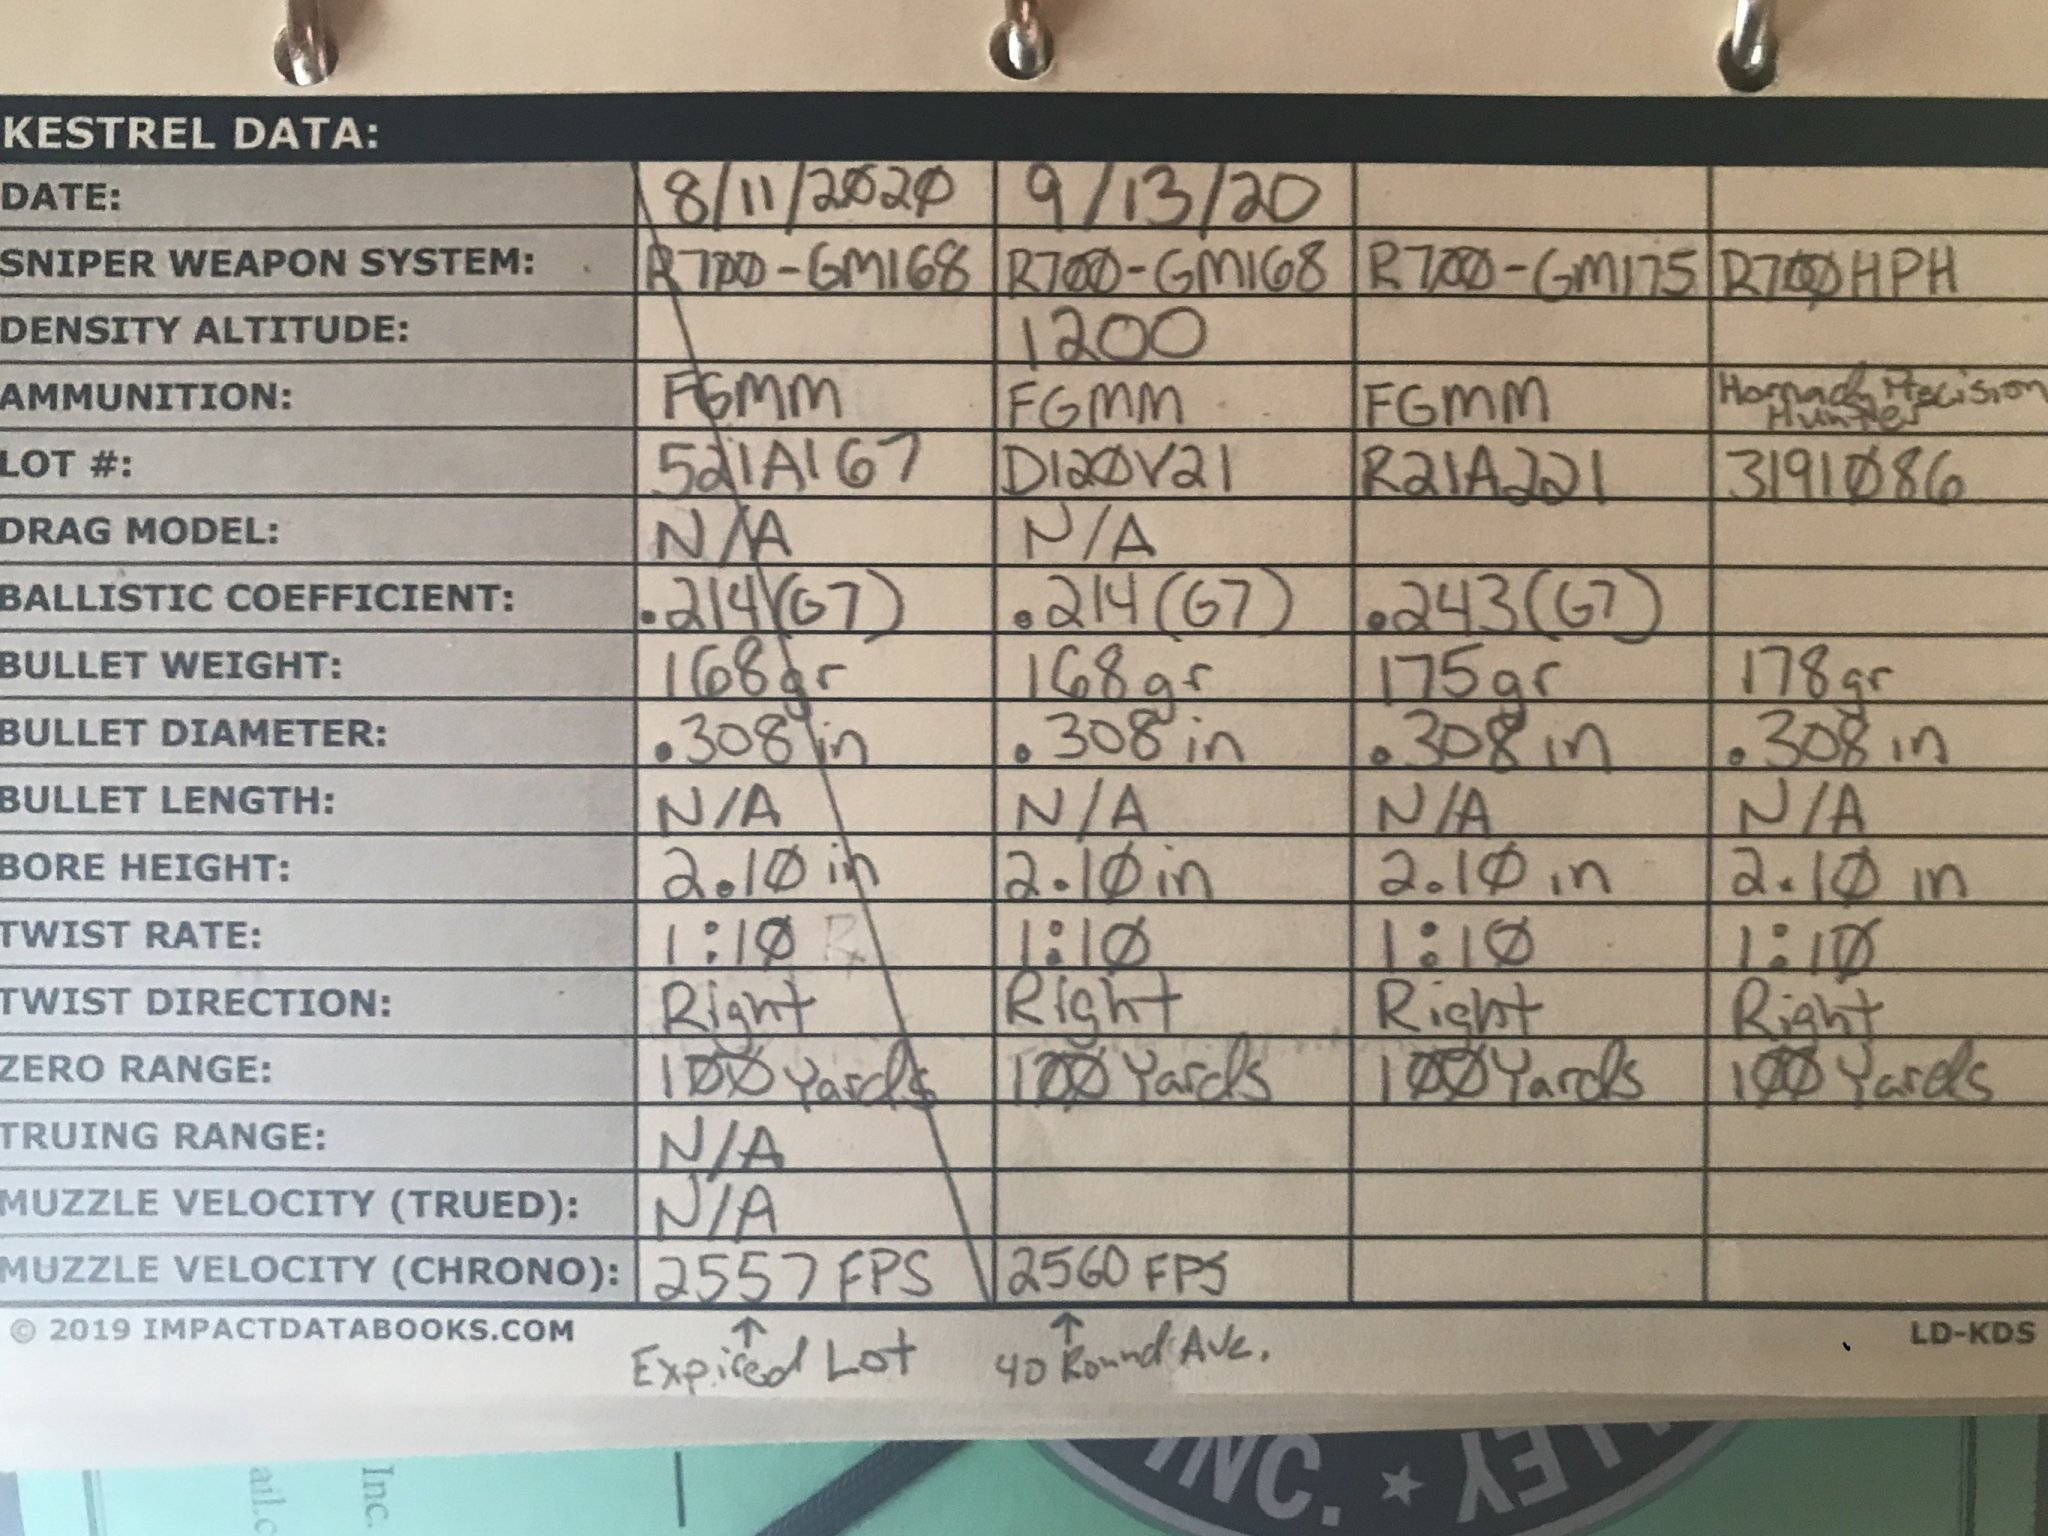 KESTREL DATA:
DATE: 8/11/2020 9/13/20
SNIPER WEAPON SYSTEM: R700-GM168 R700-GM168 R700-GM175 R700HPH
DENSITY ALTITUDE: 1200
AMMUNITION: FGMM FGMM FGMM Hornady Precision Hunter
LOT #: 521A167 D120V21 R21A221 3191086
DRAG MODEL: N/A N/A
BALLISTIC COEFFICIENT: .214(G7) .214(G7) .243(G7)
BULLET WEIGHT: 168gr 168gr 175gr 178gr
BULLET DIAMETER: .308in .308in .308in .308in
BULLET LENGTH: N/A N/A N/A N/A
BORE HEIGHT: 2.10in 2.10in 2.10in 2.10in
TWIST RATE: 1:10 1:10 1:10 1:10
TWIST DIRECTION: Right Right Right Right
ZERO RANGE: 100 Yards 100 Yards 100 Yards 100 Yards
TRUING RANGE: N/A
MUZZLE VELOCITY (TRUED): N/A
MUZZLE VELOCITY (CHRONO): 2557 FPS 2560 FPS
© 2019 IMPACTDATABOOKS.COM LD-KDS
↑ ↑
Expired Lot 40 Round Ave.
Inc.
INC. ★